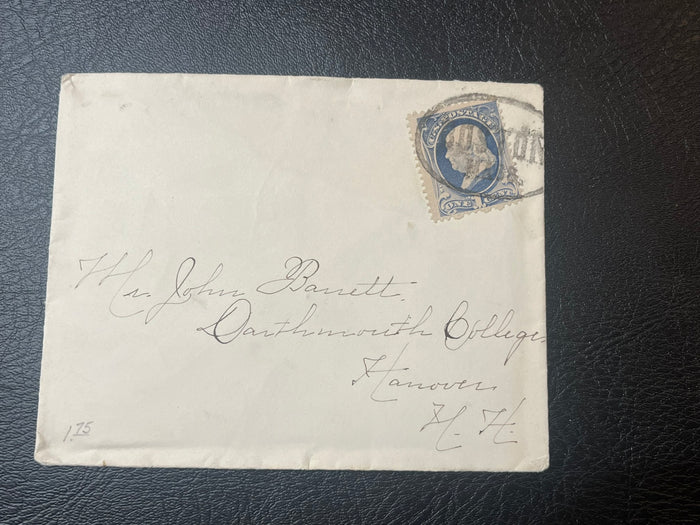 U.S. POSTAGE
ONE CENT
Mr. John Barrett.
Darthmouth College
Hanover
N. H.
1.75